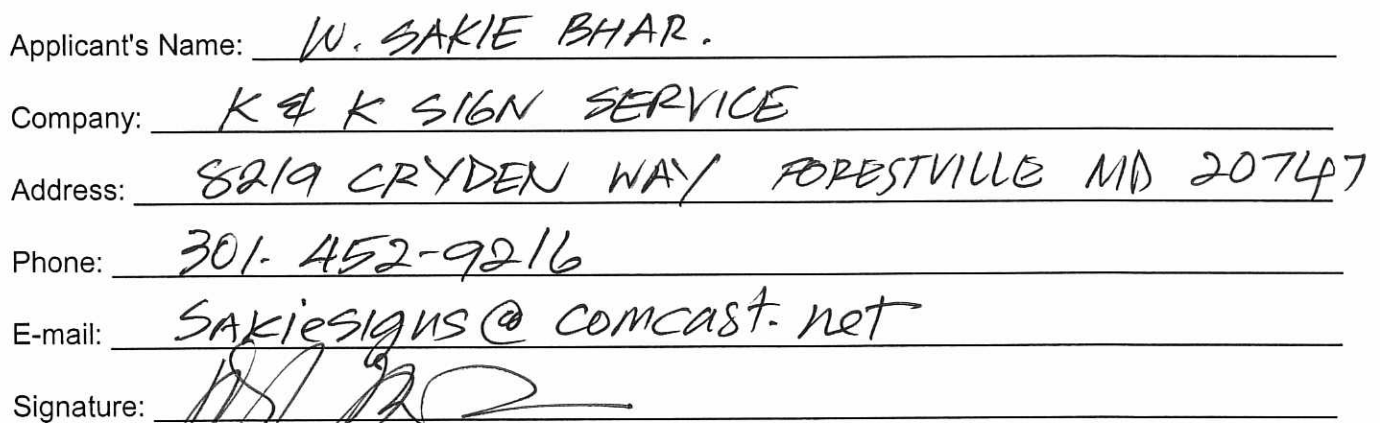 Applicant's Name: W. SAKIE BHAR.
Company: K & K SIGN SERVICE
Address: 8219 CRYDEN WAY FORESTVILLE MD 20747
Phone: 301. 452-9216
E-mail: SAKiesigns@comcast.net
Signature: